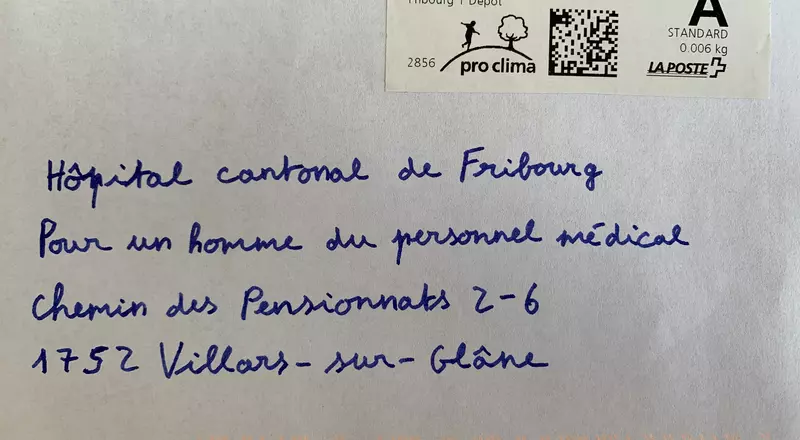 Fribourg 1 Dépôt
A
STANDARD
0.006 kg
2856 pro clima LA POSTE
Hôpital cantonal de Fribourg
Pour un homme du personnel médical
Chemin des Pensionnats 2-6
1752 Villars-sur-Glâne